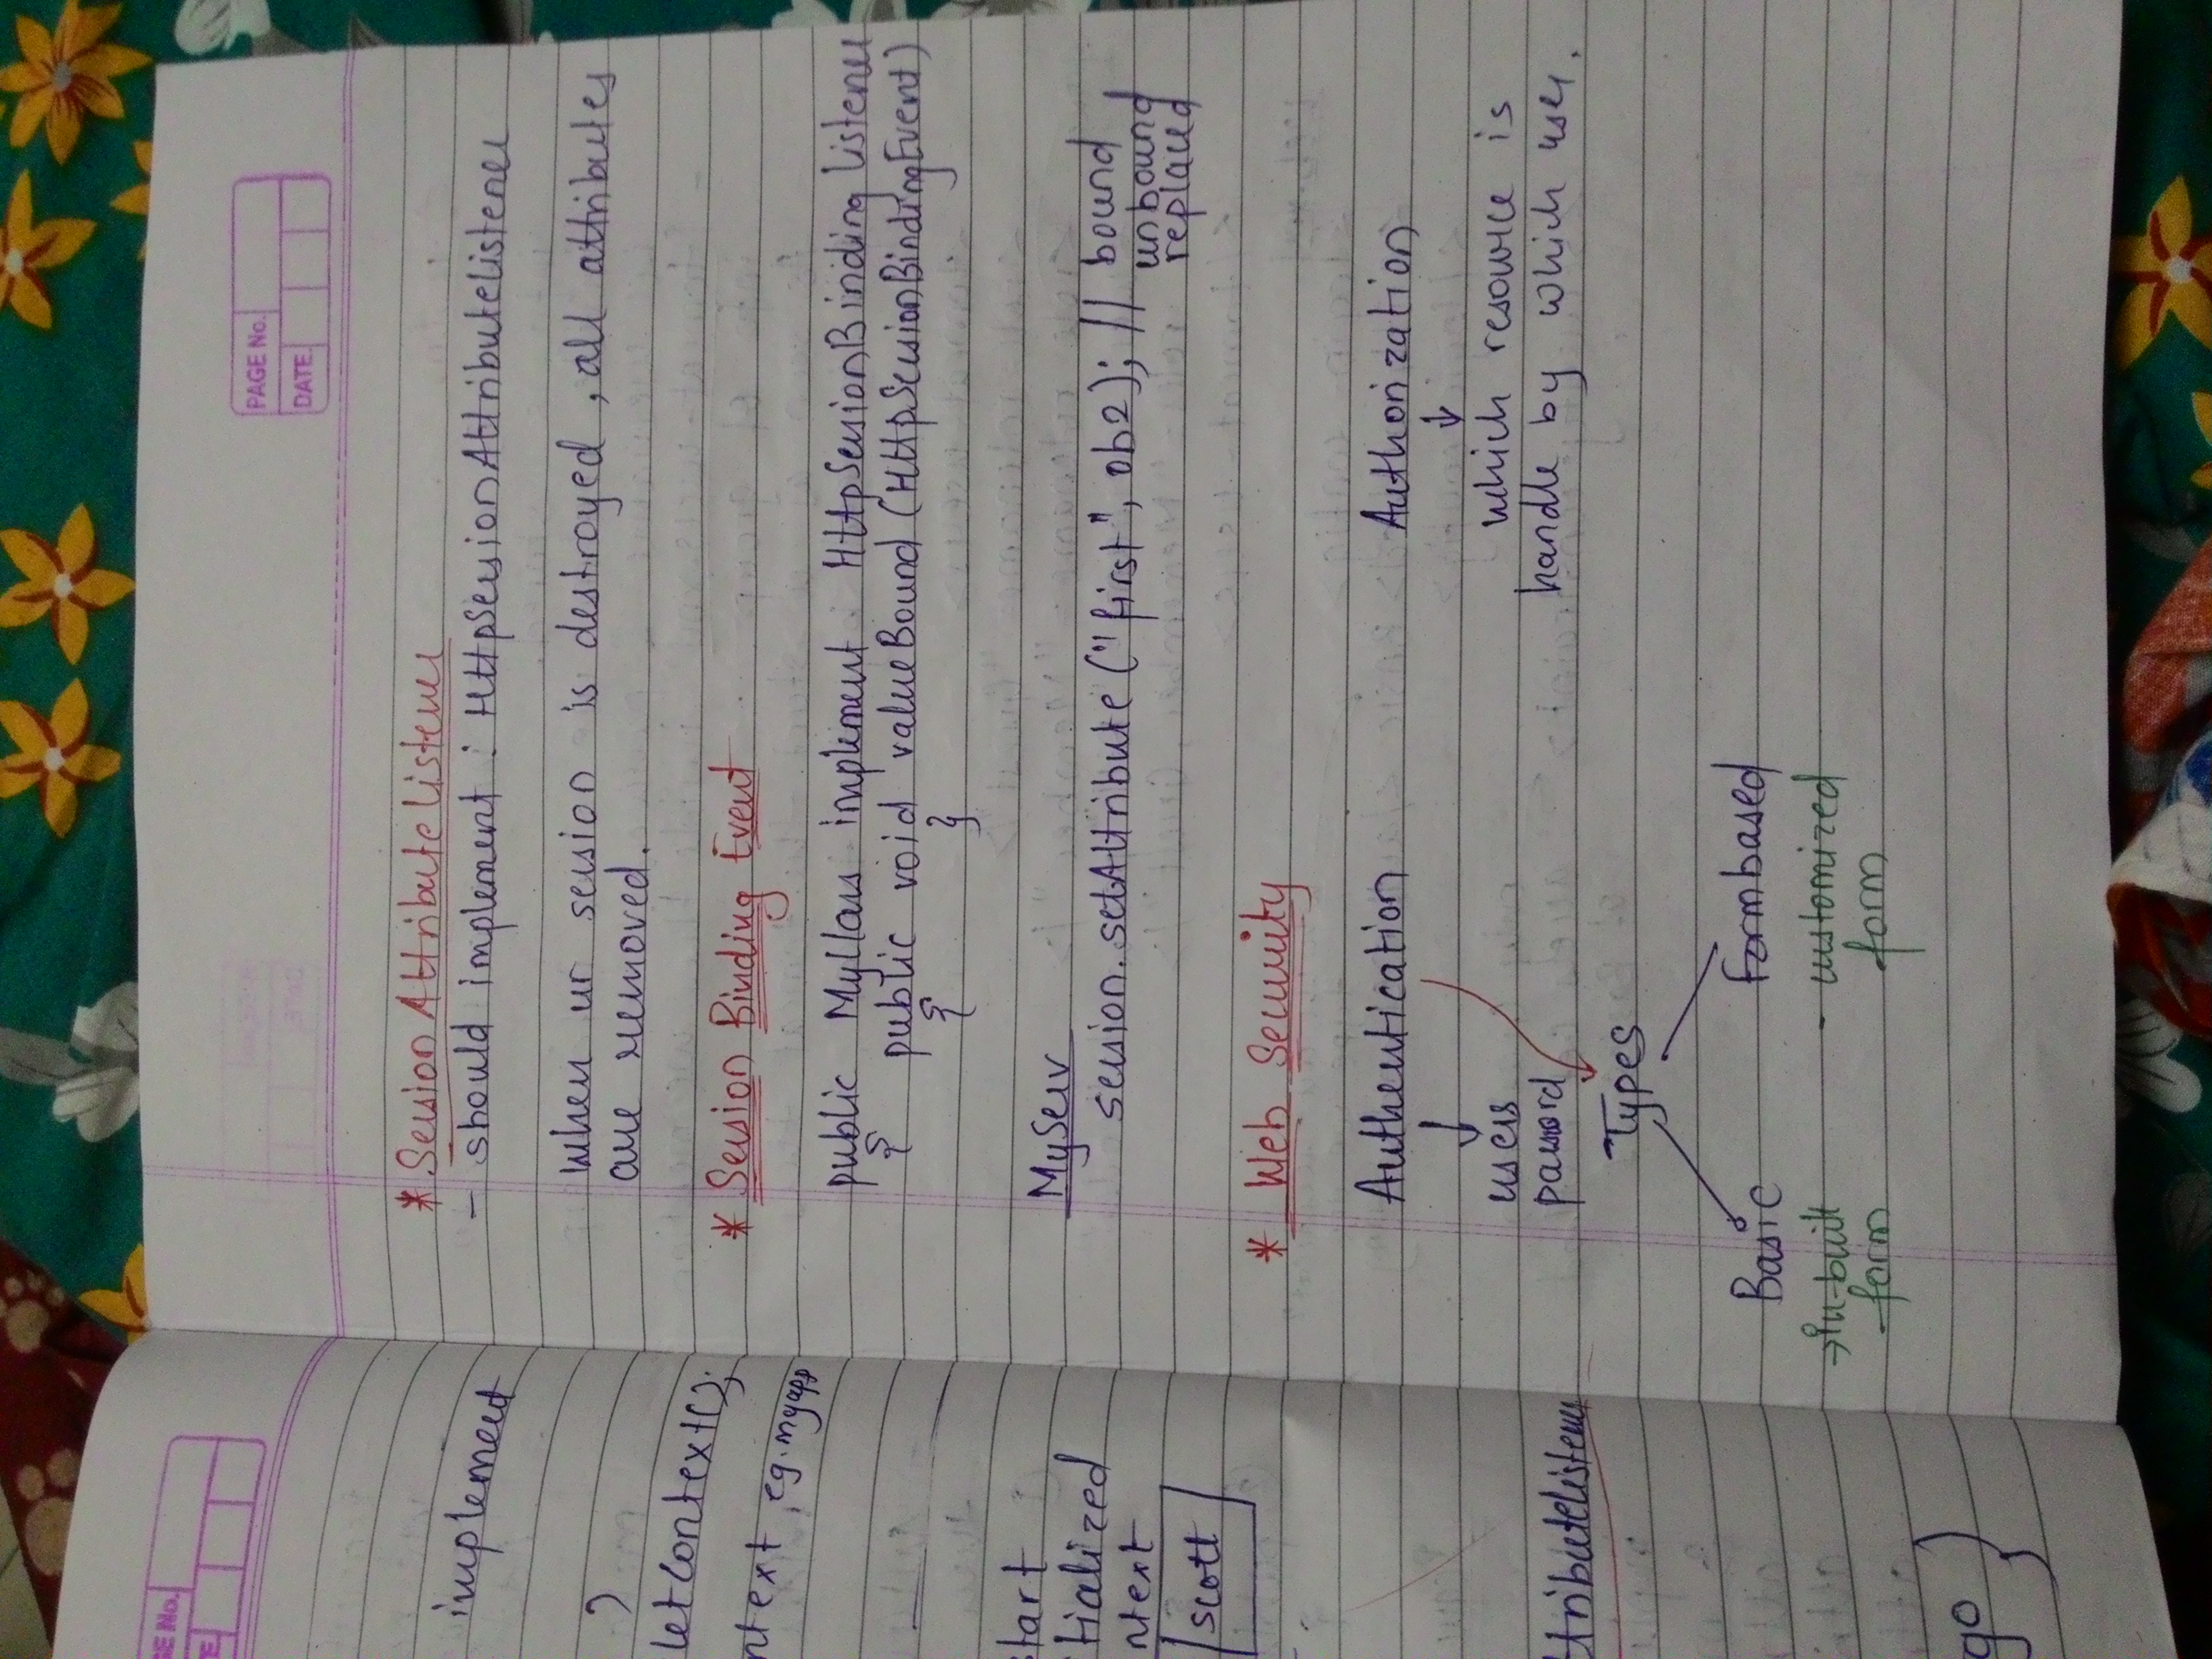 GE No.
TE
implement
)
letContext();
ntext, eg. myapp
start
tialized
ntext
scott
ttributelistener
go }
PAGE No.
DATE
* Session Attribute listener
- should implement : HttpSessionAttributelistener
when ur session is destroyed, all attributes
are removed.
* Session Binding Event
public MyClass implement HttpSessionBinding listener
{ public void valueBound (HttpSessionBindingEvent)
{ }
MyServ
session.setAttribute ("first", ob2); // bound
unbound
replaced
* Web Security
Authentication Authorization
↓ ↓
users which resource is
password handle by which user.
Types
Basic Formbased
→ in-built - customized
form form